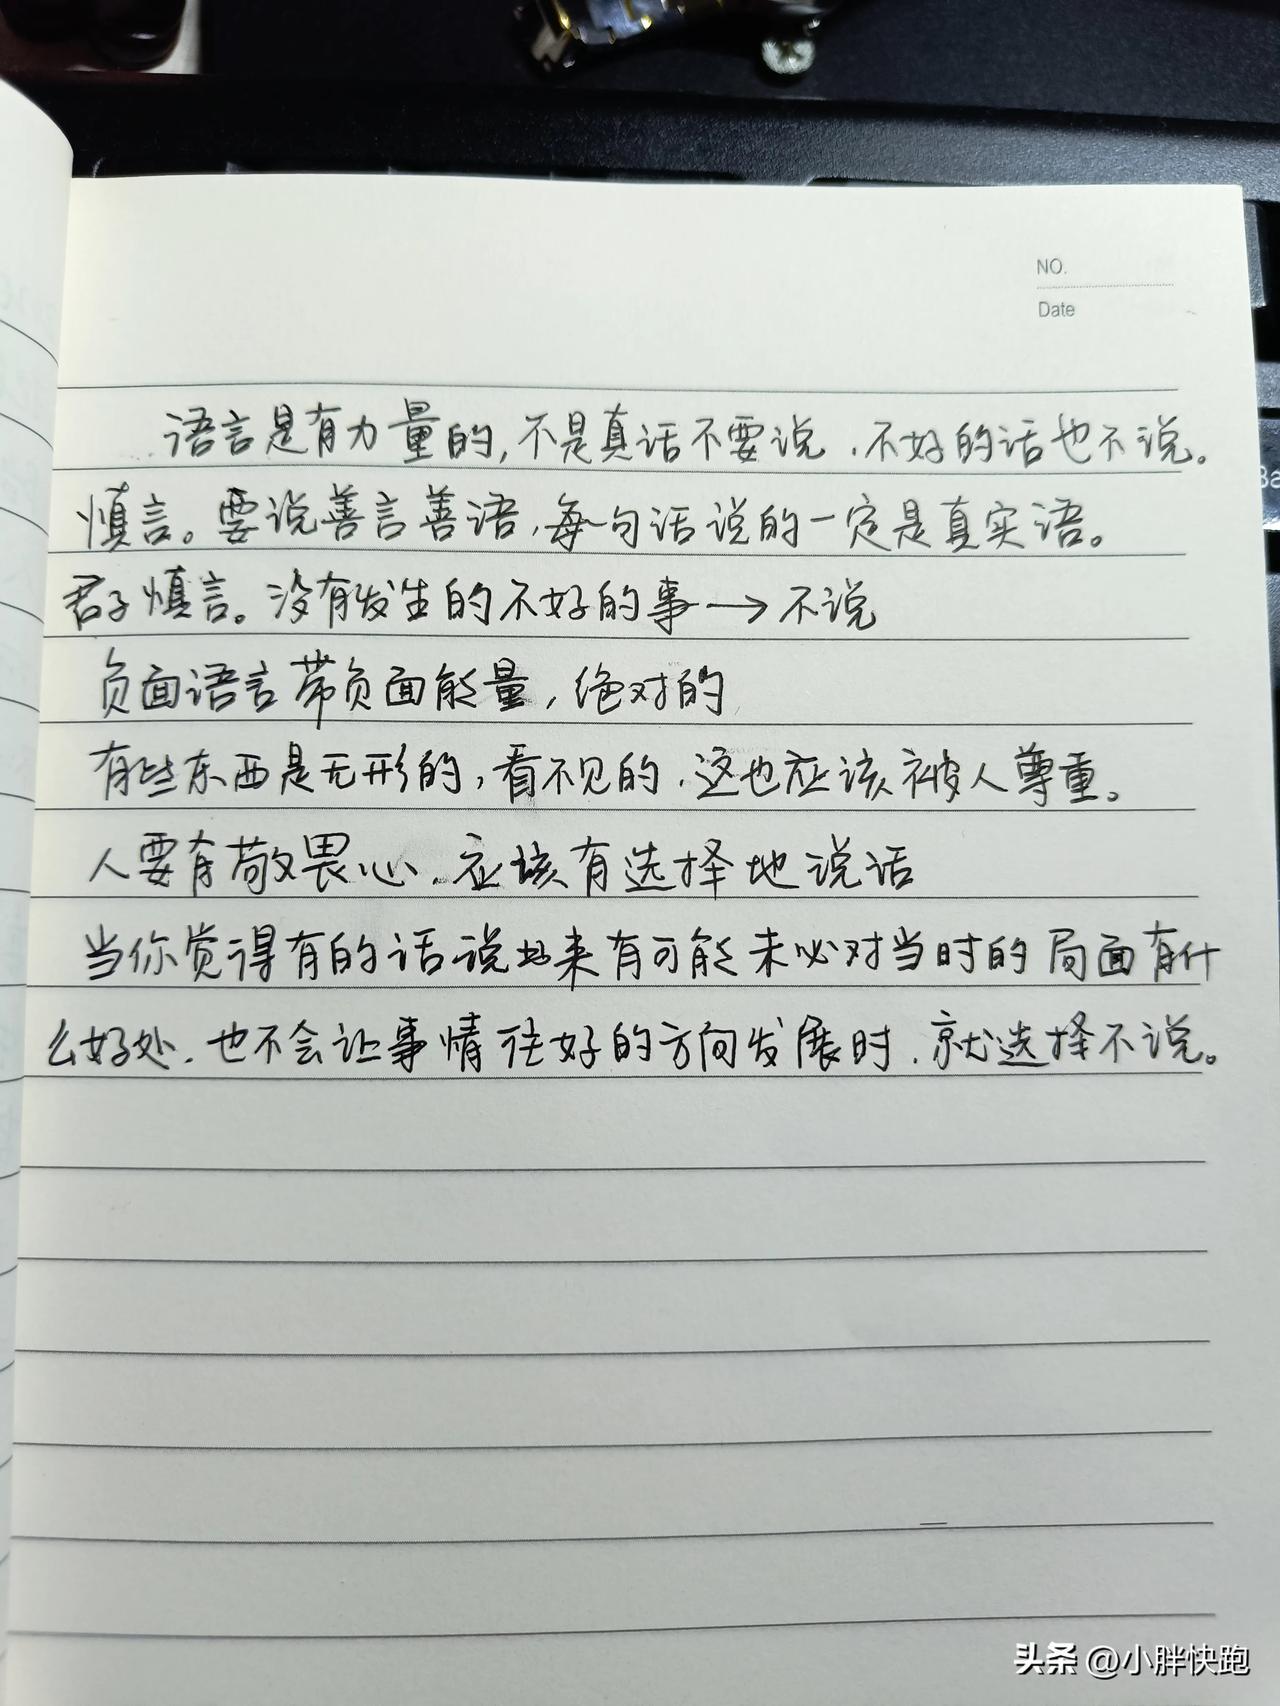 NO.
Date
语言是有力量的,不是真话不要说,不好的话也不说。
慎言。要说善言善语,每句话说的一定是真实语。
君子慎言。没有发生的不好的事→不说
负面语言带负面能量,绝对的
有些东西是无形的,看不见的,这也应该被人尊重。
人要有敬畏心,应该有选择地说话
当你觉得有的话说出来有可能未必对当时的局面有什
么好处,也不会让事情往好的方向发展时,就选择不说。
Ba
头条 @小胖快跑